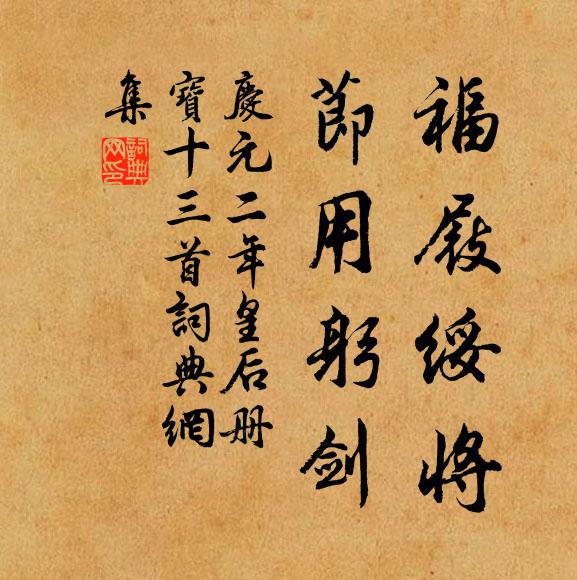 福履綏將
節用躬劍
慶元二年皇后册
寶十三首詞典網
集
詞典网印